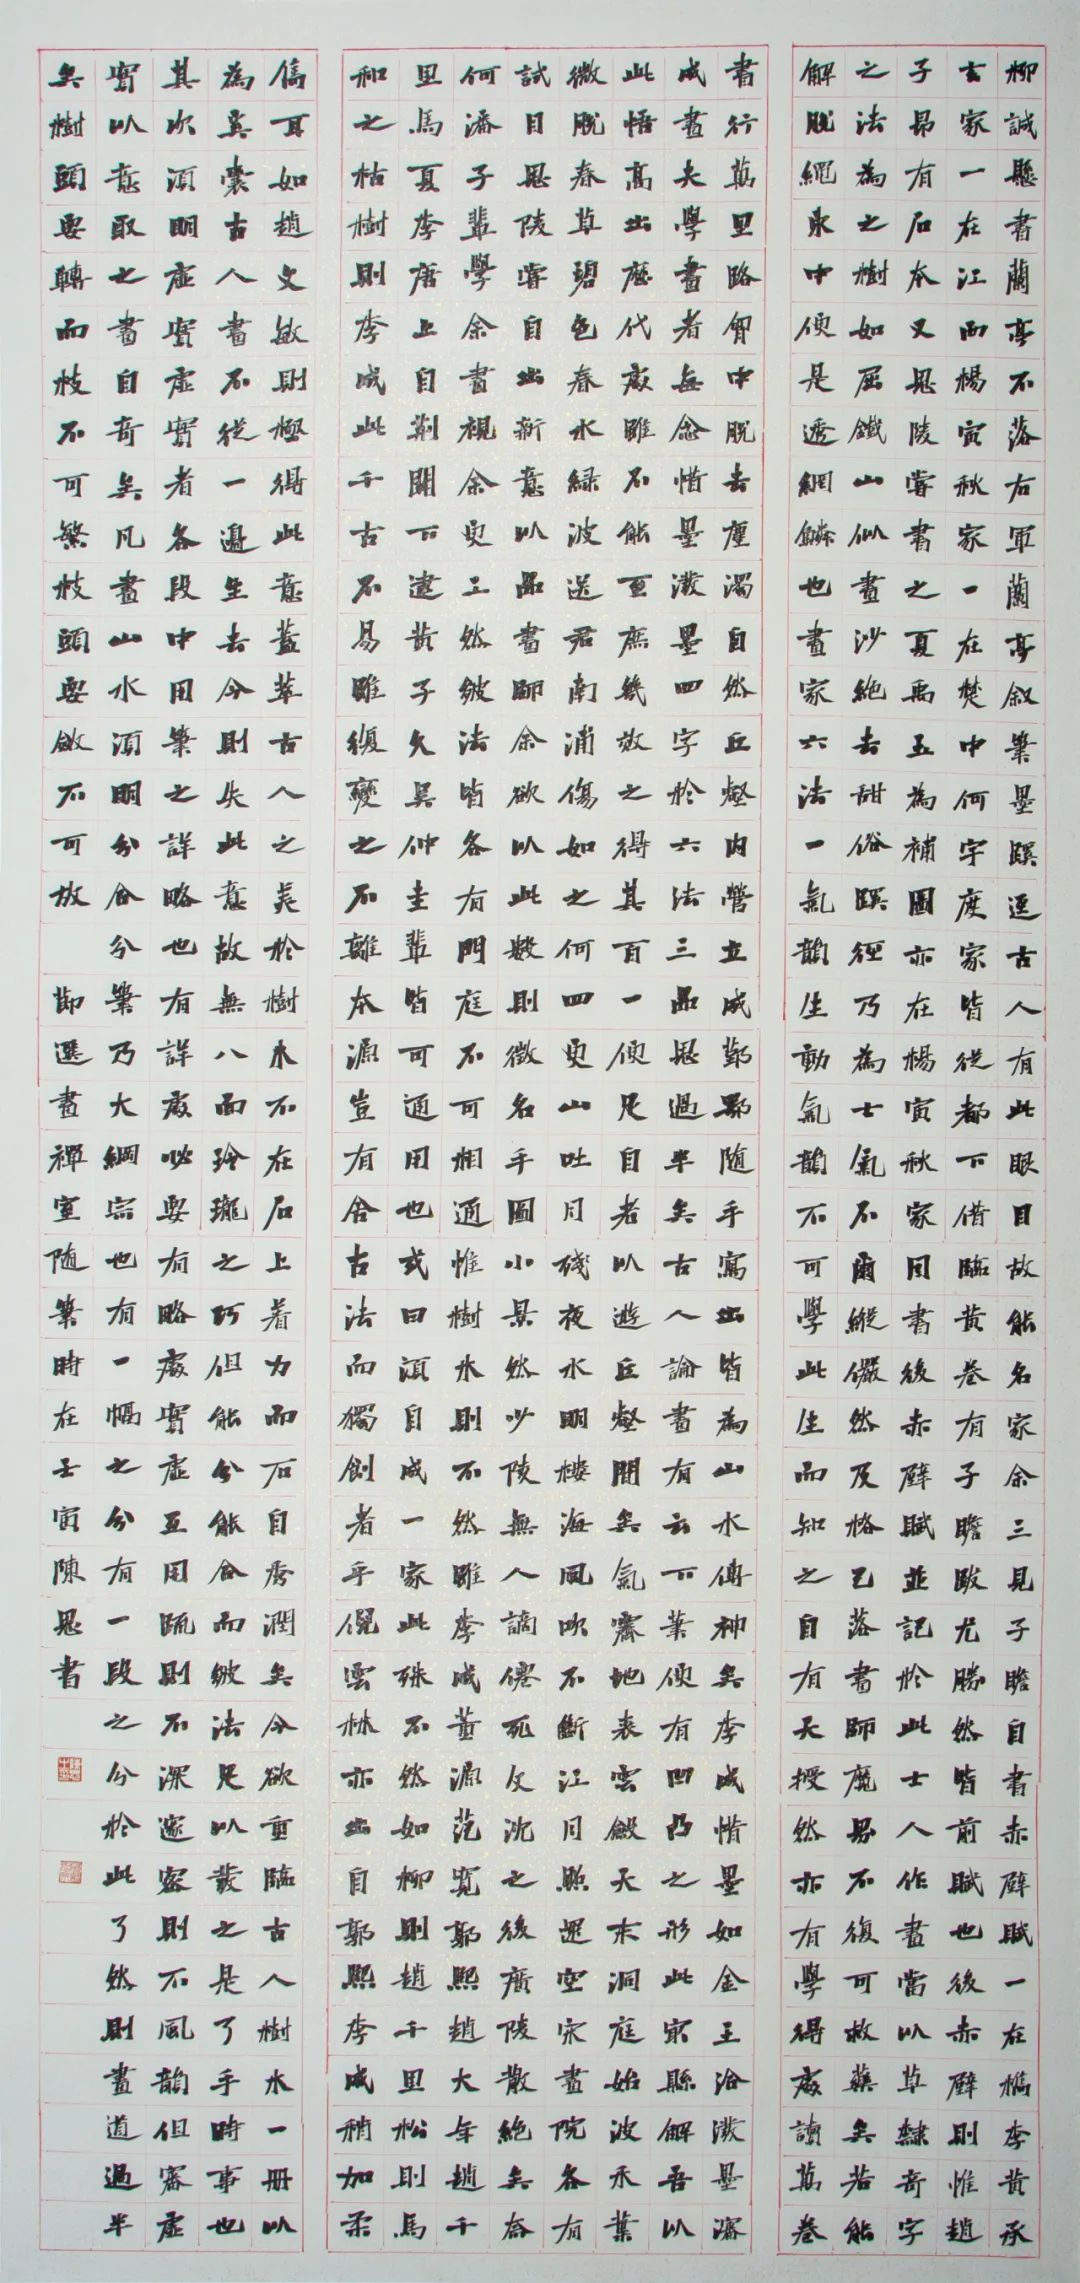 柳誠懸書蘭亭不落右軍蘭亭叙筆墨蹊逕古人有此眼目故能名家余三見子瞻自書赤壁賦一在檇李黃承
玄家一在江西楊寅秋家一在楚中何宇度家皆從都下借臨黃卷有子瞻跋尤勝然皆前賦也後赤壁則惟趙
子昂有石本又思陵嘗書之夏禹玉為補圖亦在楊寅秋家因書後赤壁賦並記於此士人作畫當以草隸奇字
之法為之樹如屈鐵山似畫沙絕去甜俗蹊徑乃為士氣不爾縱儼然及格已落畫師魔界不復可救藥矣若能
解脫繩束中便是透網鱗也畫家六法一氣韻生動氣韻不可學此生而知之自有天授然亦有學得處讀萬卷
書行萬里路胷中脫去塵濁自然丘壑內營立成鄞鄂隨手寫出皆為山水傳神矣李成惜墨如金王洽潑墨瀋
成畫夫學畫者每念惜墨潑墨四字於六法三品思過半矣古人論畫有云下筆便有凹凸之形此最懸解吾以
此悟高出歷代處雖不能至庶幾效之得其百一便足自老以遊丘壑間矣氣霽地表雲斂天末洞庭始波木葉
微脫春草碧色春水綠波送君南浦傷如之何四更山吐月殘夜水明樓海風吹不斷江月照還空宋畫院各有
試目思陵嘗自出新意以品畫師余欲以此數則徵名手圖小景然少陵無人謫僊死文沈之後廣陵散絕矣奈
何潘子輩學余畫視余更工然皴法皆各有門庭不可相通惟樹木則不然雖李成董源范寬郭熙趙大年趙千
里馬夏李唐上自荊關下逮黃子久吳仲圭輩皆可通用也或曰須自成一家此殊不然如柳則趙千里松則馬
和之枯樹則李成此千古不易雖復變之不離本源豈有舍古法而獨創者乎倪雲林亦出自郭熙李成稍加柔
儁耳如趙文敏則極得此意蓋萃古人之美於樹木不在石上着力而石自秀潤矣今欲重臨古人樹木一冊以
為奚囊古人畫不從一邊生去今則失此意故無八面玲瓏之巧但能分能合而皴法足以發之是了手時事也
其次須明虛實虛實者各段中用筆之詳略也有詳處必要有略處實虛互用疏則不深邃密則不風韻但審虛
實以意取之畫自奇矣凡畫山水須明分合分筆乃大綱宗也有一幅之分有一段之分於此了然則畫道過半
矣樹頭要轉而枝不可繁枝頭要斂不可放 節選畫禪室隨筆時在壬寅陳思書